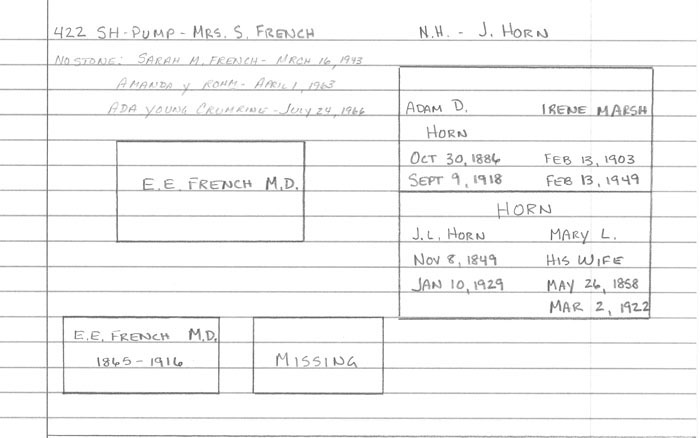 422 SH-PUMP - MRS. S. FRENCH
NO STONE: SARAH M. FRENCH - MRCH 16, 1943
AMANDA Y ROHM - APRIL 1, 1963
ADA YOUNG CRUMRINE - JULY 24, 1966
E.E. FRENCH M.D.
E.E. FRENCH M.D.
1865 - 1916
MISSING
N.H. - J. HORN
ADAM D. IRENE MARSH
HORN
OCT 30, 1886 FEB 13, 1903
SEPT 9, 1918 FEB 13, 1949
HORN
J.L. HORN MARY L.
NOV 8, 1849 HIS WIFE
JAN 10, 1929 MAY 26, 1858
MAR 2, 1922